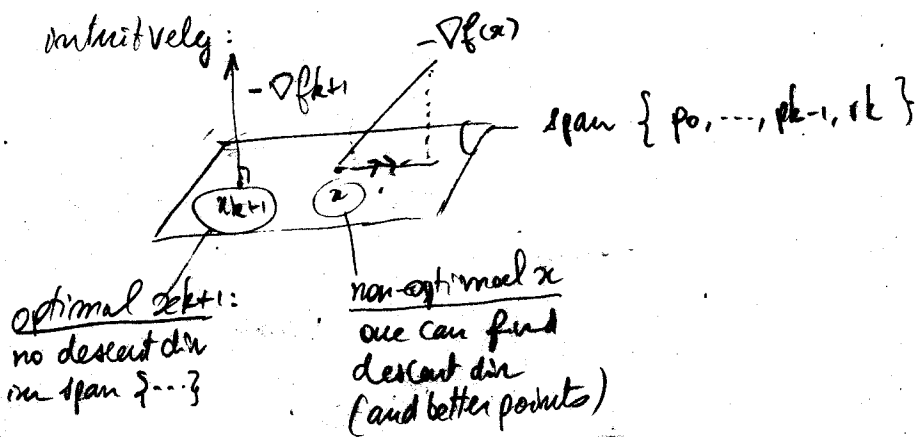 intuitvely:
-∇f(x)
-∇fk+1
span { p0, ..., pk-1, rk }
xk+1
x
optimal xk+1:
no descent dir
in span {...}
non-optimal x
one can find
descent dir
(and better points)